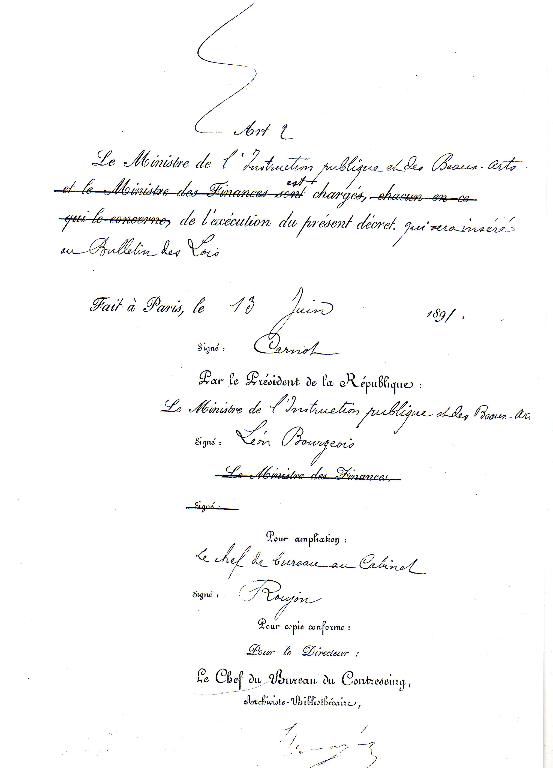 Art 2
Le Ministre de l'Instruction publique et des Beaux-Arts
et le Ministre des Finances sont est chargés, chacun en ce
qui le concerne, de l'exécution du présent décret. qui sera inséré
au Bulletin des Lois
Fait à Paris, le 13 Juin 1891.
Signé : Carnot
Par le Président de la République :
Le Ministre de l'Instruction publique et des Beaux-Arts
Signé : Léon Bourgeois
Le Ministre des Finances,
Signé :
Pour ampliation :
Le chef de bureau au Cabinet
Signé : Roujon
Pour copie conforme :
Pour le Directeur :
Le Chef du Bureau du Contreseing,
Archiviste-Bibliothécaire,